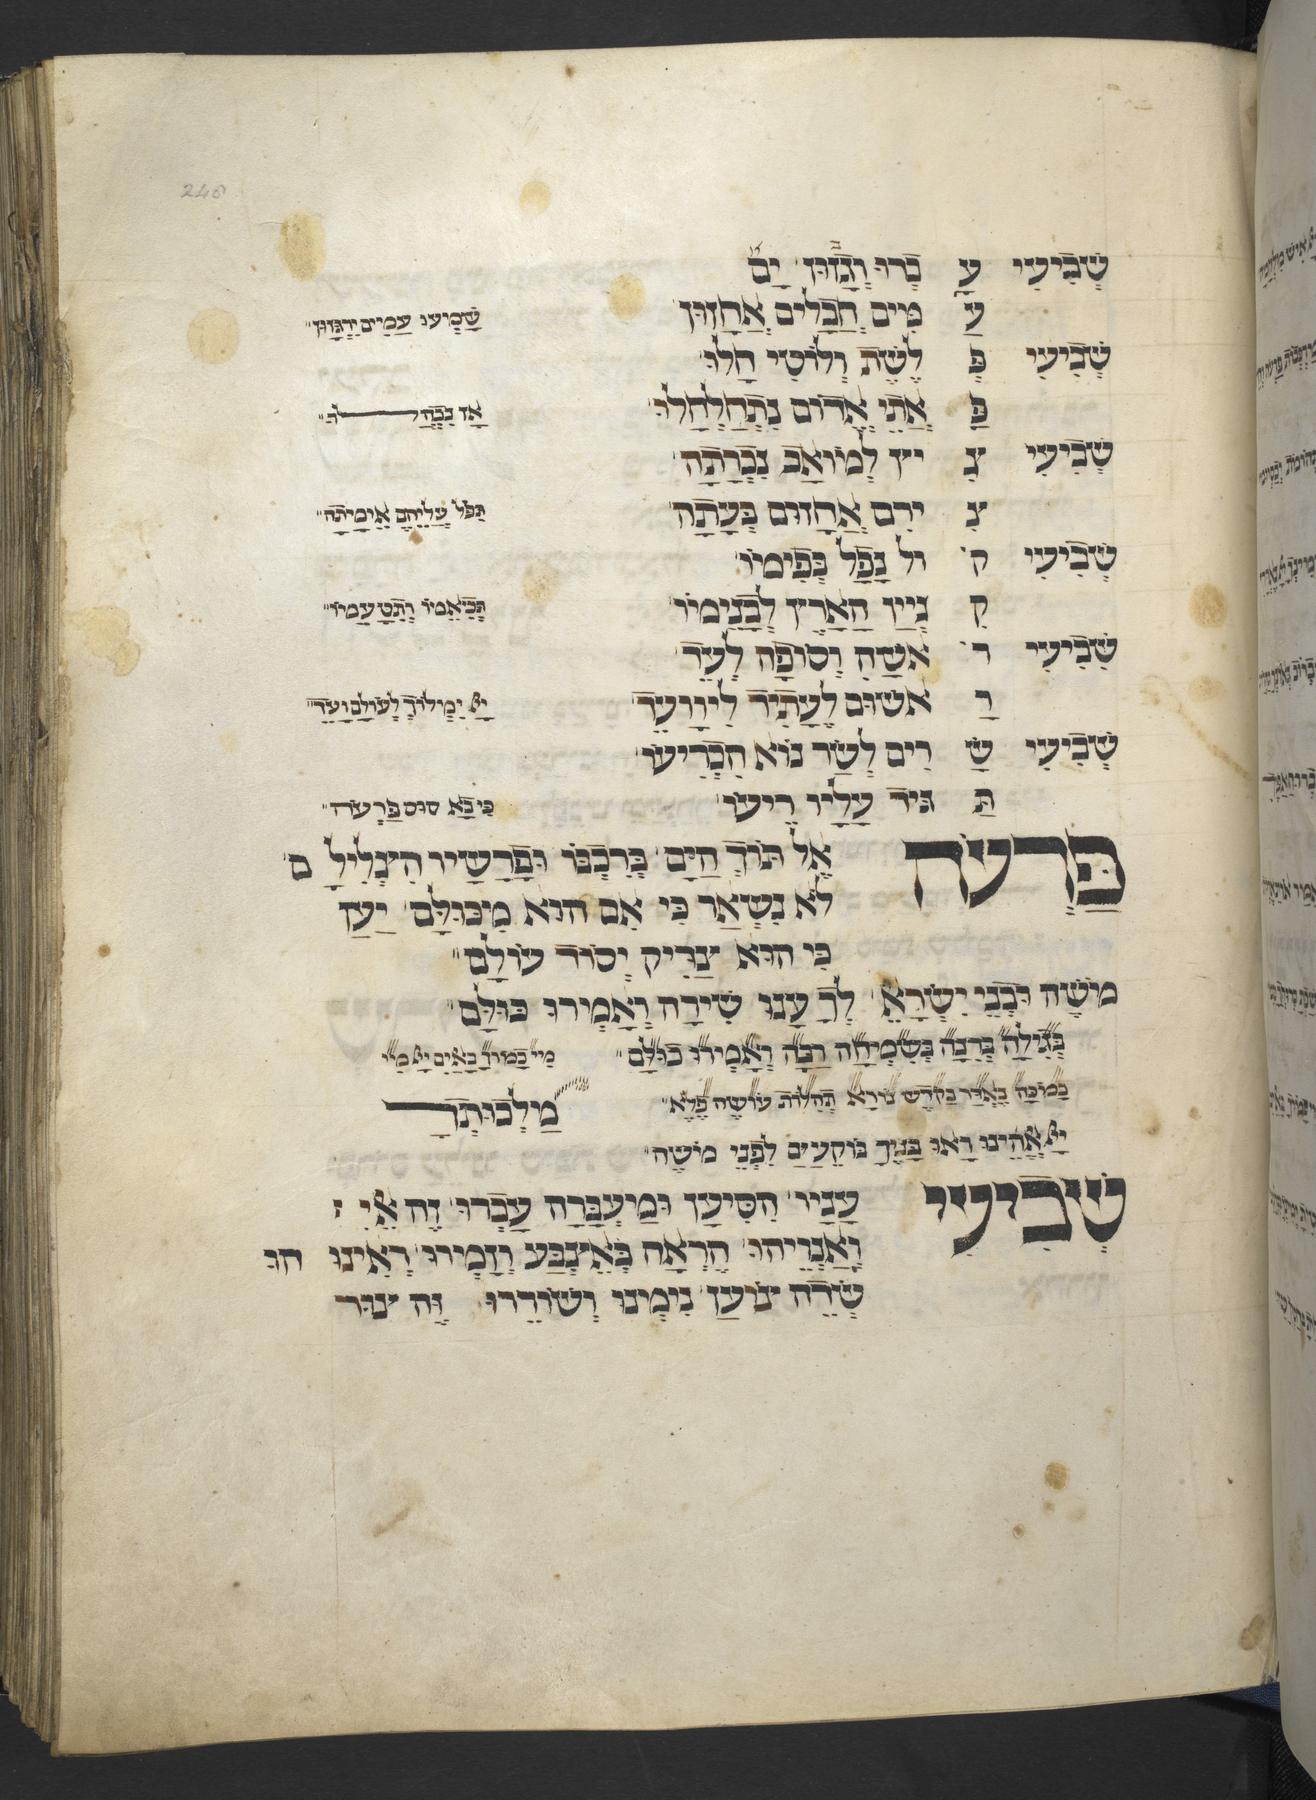 246
שְׁבִיעִי עָ בְרוּ וְגָזוּן יָם
עַ מִּים חֲבָלִים אֲחָזוּן שָׁמְעוּ עַמִּים יִרְגָּזוּן
שְׁבִיעִי פְּ לֶשֶׁת וְלוֹטִי חָלוּ
פַּ אֲתֵי אֱדוֹם נִתְחַלְחָלוּ אָז נִבְהֲלוּ
שְׁבִיעִי צִ יץ לְמוֹאָב נִכְרָתָה
צִ ירִם אֲחָזוּם בְּעָתָה תִּפֹּל עֲלֵיהֶם אֵימָתָה
שְׁבִיעִי ק ול נָפַל בְּפִימוֹ
קִ נְיַין הָאָרֶץ לְבָנֵימוֹ תְּבִאֵמוֹ וְתִטָּעֵמוֹ
שְׁבִיעִי ר אשה וְסוּפָה לְעֵר
רָ אשום לֶעָתִיד לִיוָועֵד יְיָ יִמְלוֹךְ לְעוֹלָם וָעֶד
שְׁבִיעִי שָׂ רִים לְשַׂר נוֹא הִכְרִיעוֹ
תַּ גִּיד עָלָיו רֵיעוֹ כִּי בָא סוּס פַּרְעֹה
פַּרְעֹה אֶל תּוֹךְ הַיָּם בְּרִכְבּוֹ וּפָרָשָׁיו הִצְלִילָ ם
לֹא נִשְׁאַר כִּי אִם הוּא מִכּוּלָּם יַעַן
כִּי הוּא צַדִּיק יְסוֹד עוֹלָם
מֹשֶׁה וּבְנֵי יִשְׂרָאֵ לְךָ עָנוּ שִׁירָה וְאָמְרוּ כוּלָּם
בְּגִילָה בְּרִנָּה בְּשִׂמְחָה רַבָּה וְאָמְרוּ כוּלָּם מִי כָמוֹךָ בָאֵלִים יְיָ מִי
כָּמוֹכָה נֶאְדָּר בַּקֹּדֶשׁ נוֹרָא תְהִלּוֹת עוֹשֶׂה פֶלֶא
מַלְכוּתְךָ
יְיָ אֱלֹהֵינוּ רָאוּ בָנֶיךָ בּוֹקֵעַ יָם לִפְנֵי מֹשֶׁה
שְׁבִיעִי עֲנָיו הִסִּיעָן וּמַיעְבָּרָה עָבְרוּ זֶה אֵלִי
וְאַנְוֵיהוּ הֶרְאָה בְּאֶצְבַּע וְזִמְרוּ רְאִינוּ הוּ
שָׂדֵה צוֹעַן נִימְנוּ וְשׁוֹרֵרוּ זֶה צוּר